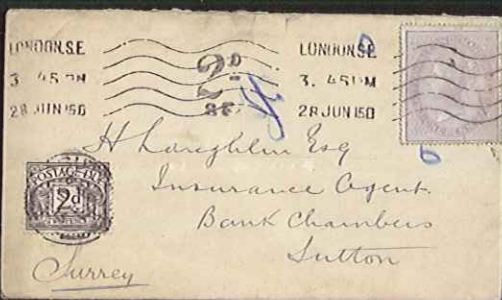 LONDON.S.E.
3. 45 PM
28 JUN 15 D
LONDON.S.E.
3. 45 PM
28 JUN 15 D
2D
POSTAGE DUE
2d
H Laughlin Esq
Insurance Agent.
Bank Chambers
Sutton
Surrey